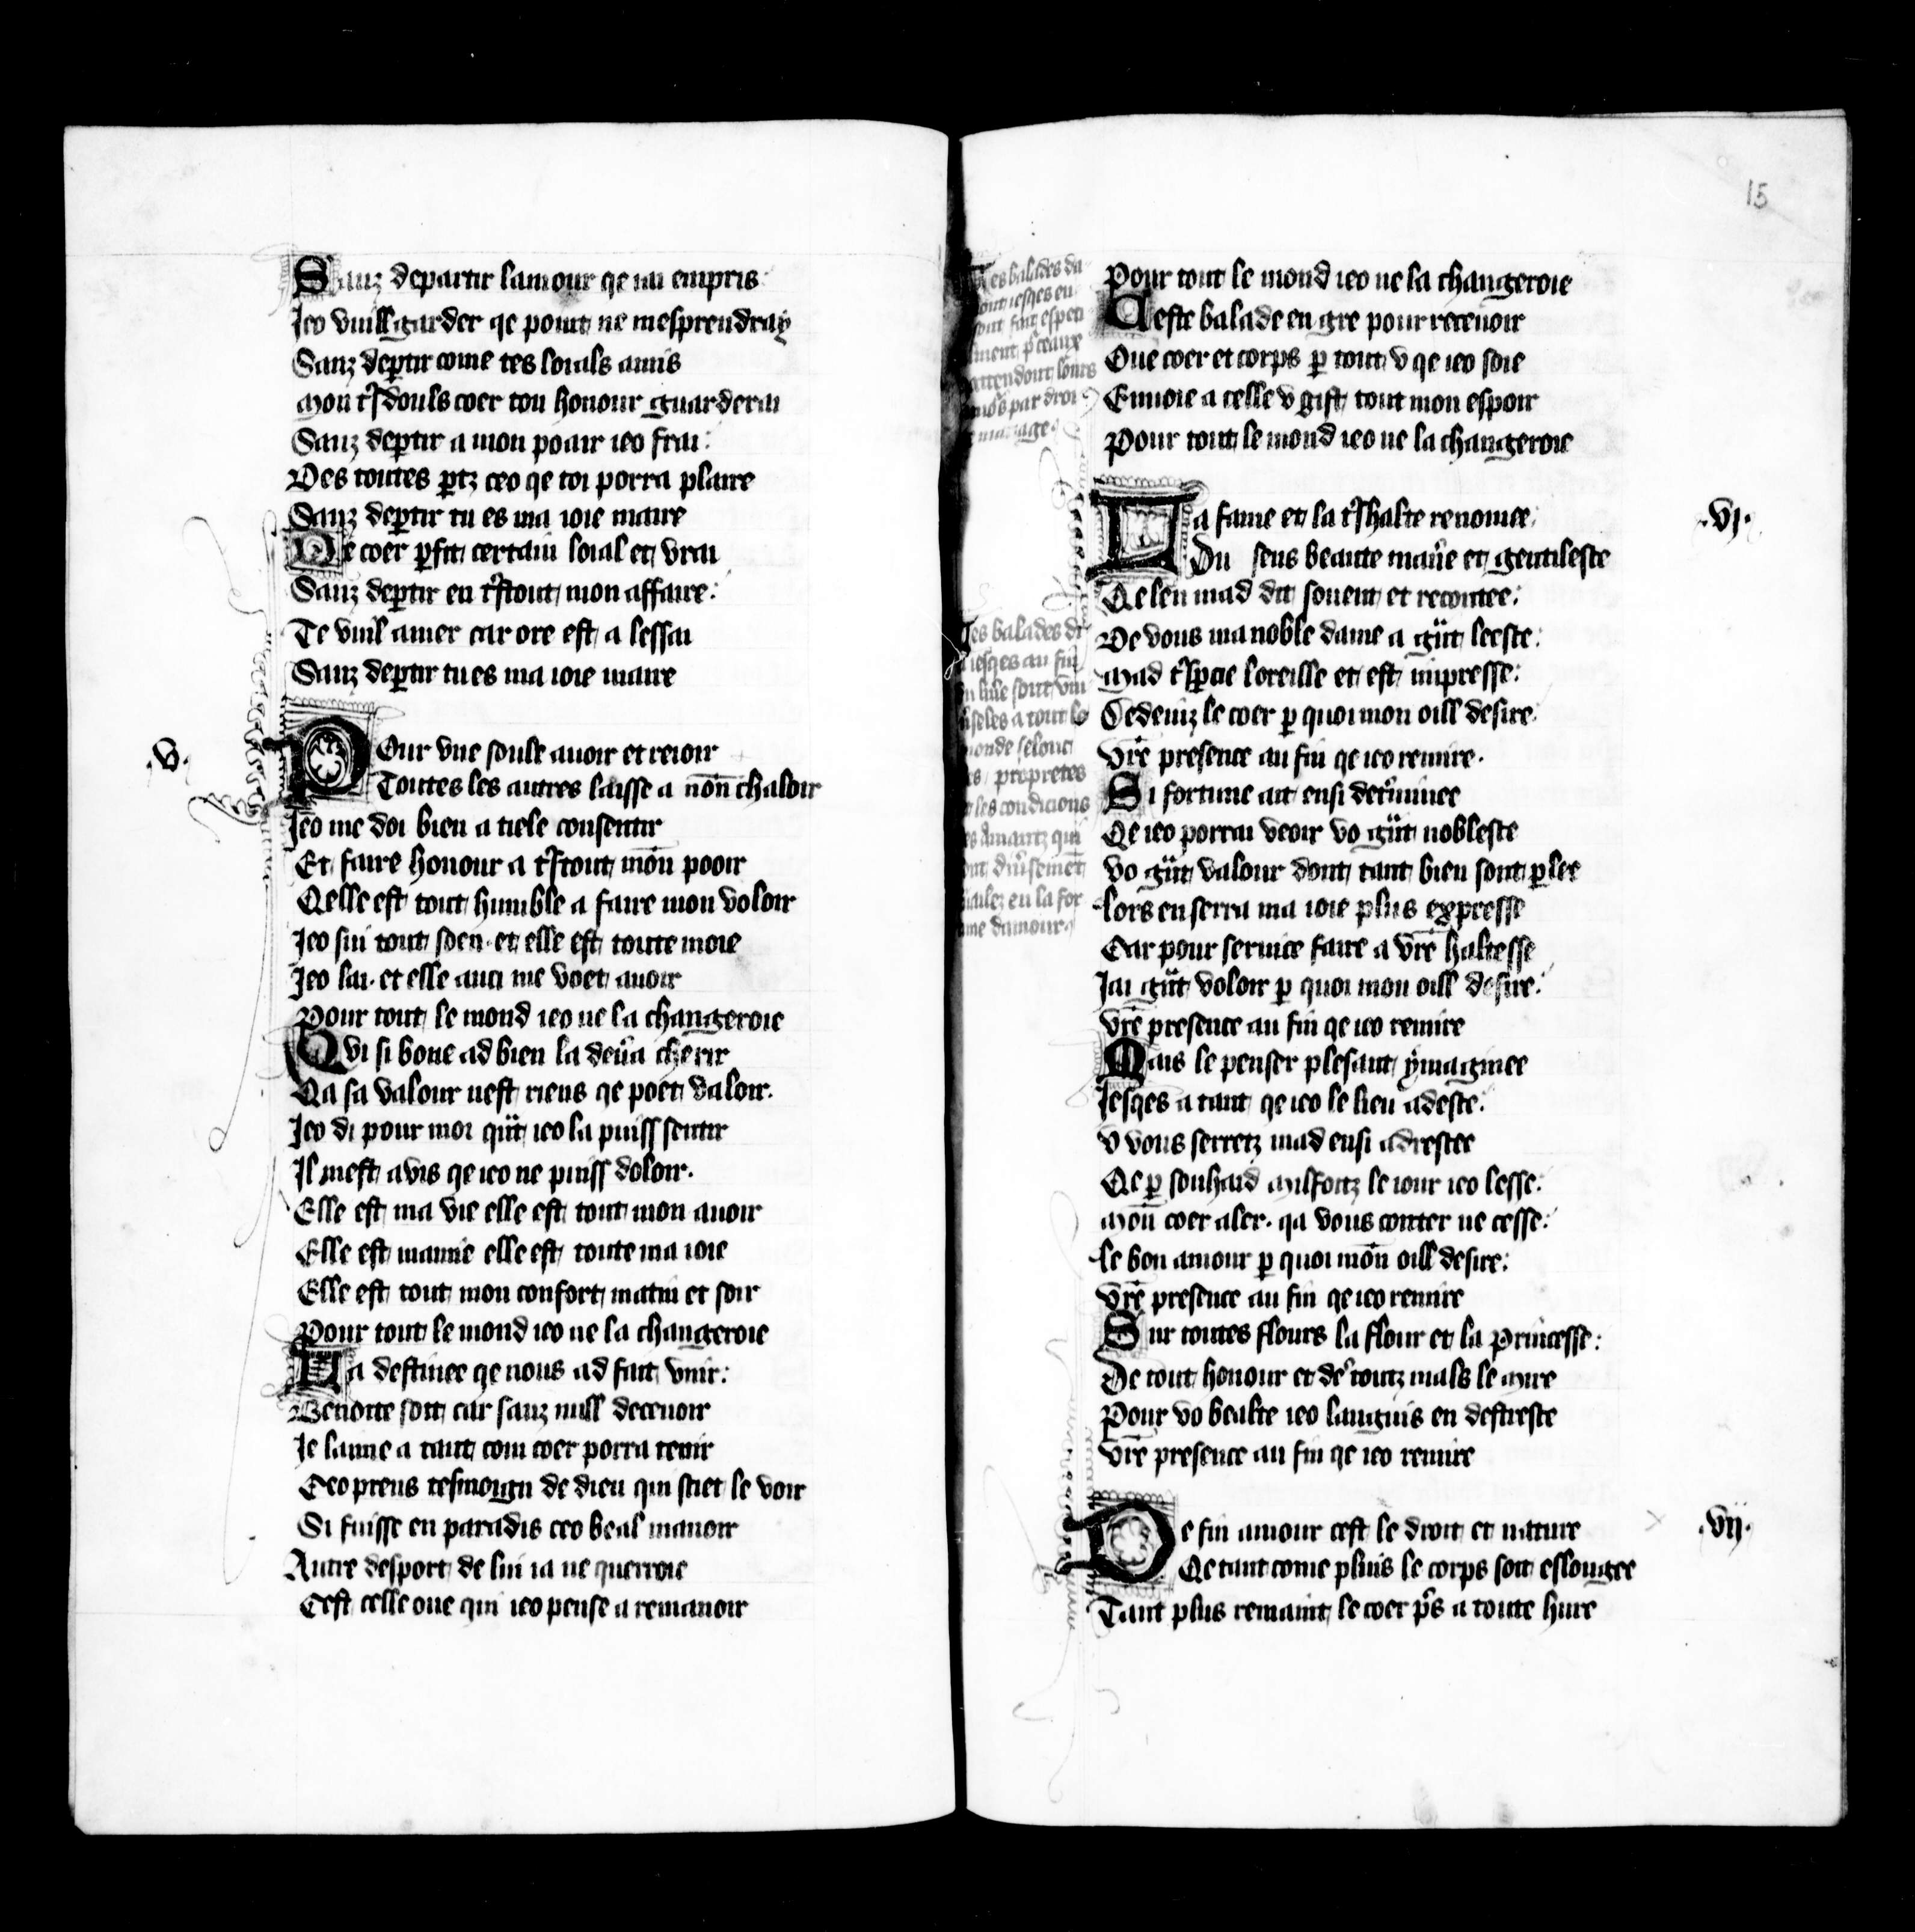 Sanz departir lamour qe iai empris
Jeo vuill garder qe point ne mesprendray
Sanz dep̄tir come tes loials amis
Mon tr̄sdouls coer ton honour guarderai
Sanz dep̄tir a mon poair ieo frai:
Des toutes p̄tz ceo qe toi porra plaire
Sanz dep̄tir tu es ma ioie maire
De coer p̄fit certain loial et vrai
Sanz dep̄tir en tr̄stout mon affaire:
Te vuil amer car ore est a lessai
Sanz dep̄tir tu es ma ioie maire
.V.
Pour vne soule auoir et reioir
Toutes les autres laisse a nōn chaloir
Jeo me doi bien a tiele consentir
Et faire honour a tr̄stout mōn pooir
Qelle est tout humble a faire mon voloir
Jeo sui tout soen. et elle est toute moie
Jeo lai. et elle auci me voet auoir
Pour tout le mond ieo ne la changeroie
Qvi si bone ad bien la deūa cherir
Qa sa valour nest riens qe poet valoir.
Jeo di pour moi qn̄t ieo la puiss sentir
Il mest avis qe ieo ne puiss doloir.
Elle est ma vie elle est tout mon auoir
Elle est mamie elle est toute ma ioie
Elle est tout mon confort matin et soir
Pour tout le mond ieo ne la changeroie
La destinee qe nous ad fait vnir:
Benoite soit car sanz null deceuoir
Je laime a tant com coer porra tenir
Ceo prens tesmoign de dieu qui sciet le voir
Si fuisse en paradis ceo beal manoir
Autre desport de lui ia ne querroie
Cest celle oue qui ieo pense a remanoir
15
Pour tout le mond ieo ne la changeroie
Ceste balade en gre pour receuoir
Oue coer et corps p̄ tout v qe ieo soie
Enuoie a celle v gist tout mon espoir
Pour tout le mond ieo ne la changeroie
es balades da
ont iesqes en
sont fait espen
ment p̄ ceaux
attendont lours
mōs par droi
mariage.
.VI.
La fame et la tr̄shalte renomee
Du sens beaute maňe et gentilesce
Qe len mad dit souent et recontee:
De vous ma noble dame a gn̄t leesce:
Mad tr̄sp̄cie loreille et est impresse:
Dedeinz le coer p̄ quoi mon oill desire
Vr̄e presence au fin qe ieo remire.
Si fortune ait ensi determinee
Qe ieo porrai veoir vo gn̄t noblesce
Vo gn̄t valour dont tant bien sont p̄lee
Lors en serra ma ioie plus expresse
Car pour seruice faire a vr̄e haltesse
Jai gn̄t voloir p̄ quoi mon oill desire:
Vr̄e presence au fin qe ieo remire
Mais le penser plesant ymaginee
Jesqes a tant qe ieo le lieu adesce:
V vous serretz mad ensi adrescee
Qe p̄ souhaid Milfoitz le iour ieo lesse:
Mon coer aler. qa vous conter ne cesse:
Le bon amour p̄ quoi mōn oill desire:
Vr̄e presence au fin qe ieo remire
Sur toutes flours la flour et la Princesse:
De tout honour et de toutz mals le Mire
Pour vo bealte ieo languis en destresce
Vr̄e presence au fin qe ieo remire
es balades di
iesqes au fin
liūe sont vni
seles a tout le
monde selonc
s propretes
les condicions
es Amantz qui
ont diūsement
ailez en la for
ne damour
.VII.
De fin amour cest le droit et nature
Qe tant come pluis le corps soit eslongee
Tant plus remaint le coer p̄s a toute hure